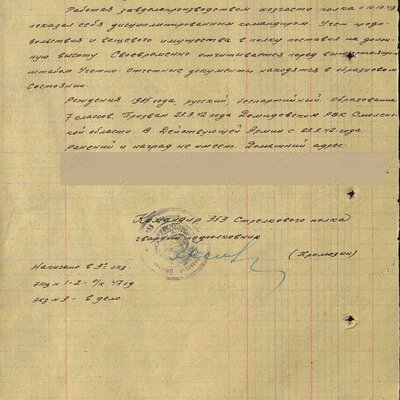 Работая завделопроизводством хозчасти полка с 10.4.43
показал себя дисциплинированным командиром. Учет продо-
вольствия и вещевого имущества в полку поставил на долж-
ную высоту. Своевременно отчитывается перед вышестоящим
штабом. Учетно-отчетные документы находятся в образцовом
состоянии.
Рождения 1915 года, русский беспартийный. Образование
7 классов. Призван 28.3.42 года Демидовским РВК Смолен-
ской области. В Действующей Армии с 28.3.42 года
Ранений и наград не имеет. Домашний адрес:
Командир 353 Стрелкового полка
гвардии подполковник
(Хромозин)
Написано в 3х экз.
экз № 1-2 - п/к 47 сд
экз № 3 - в дело.